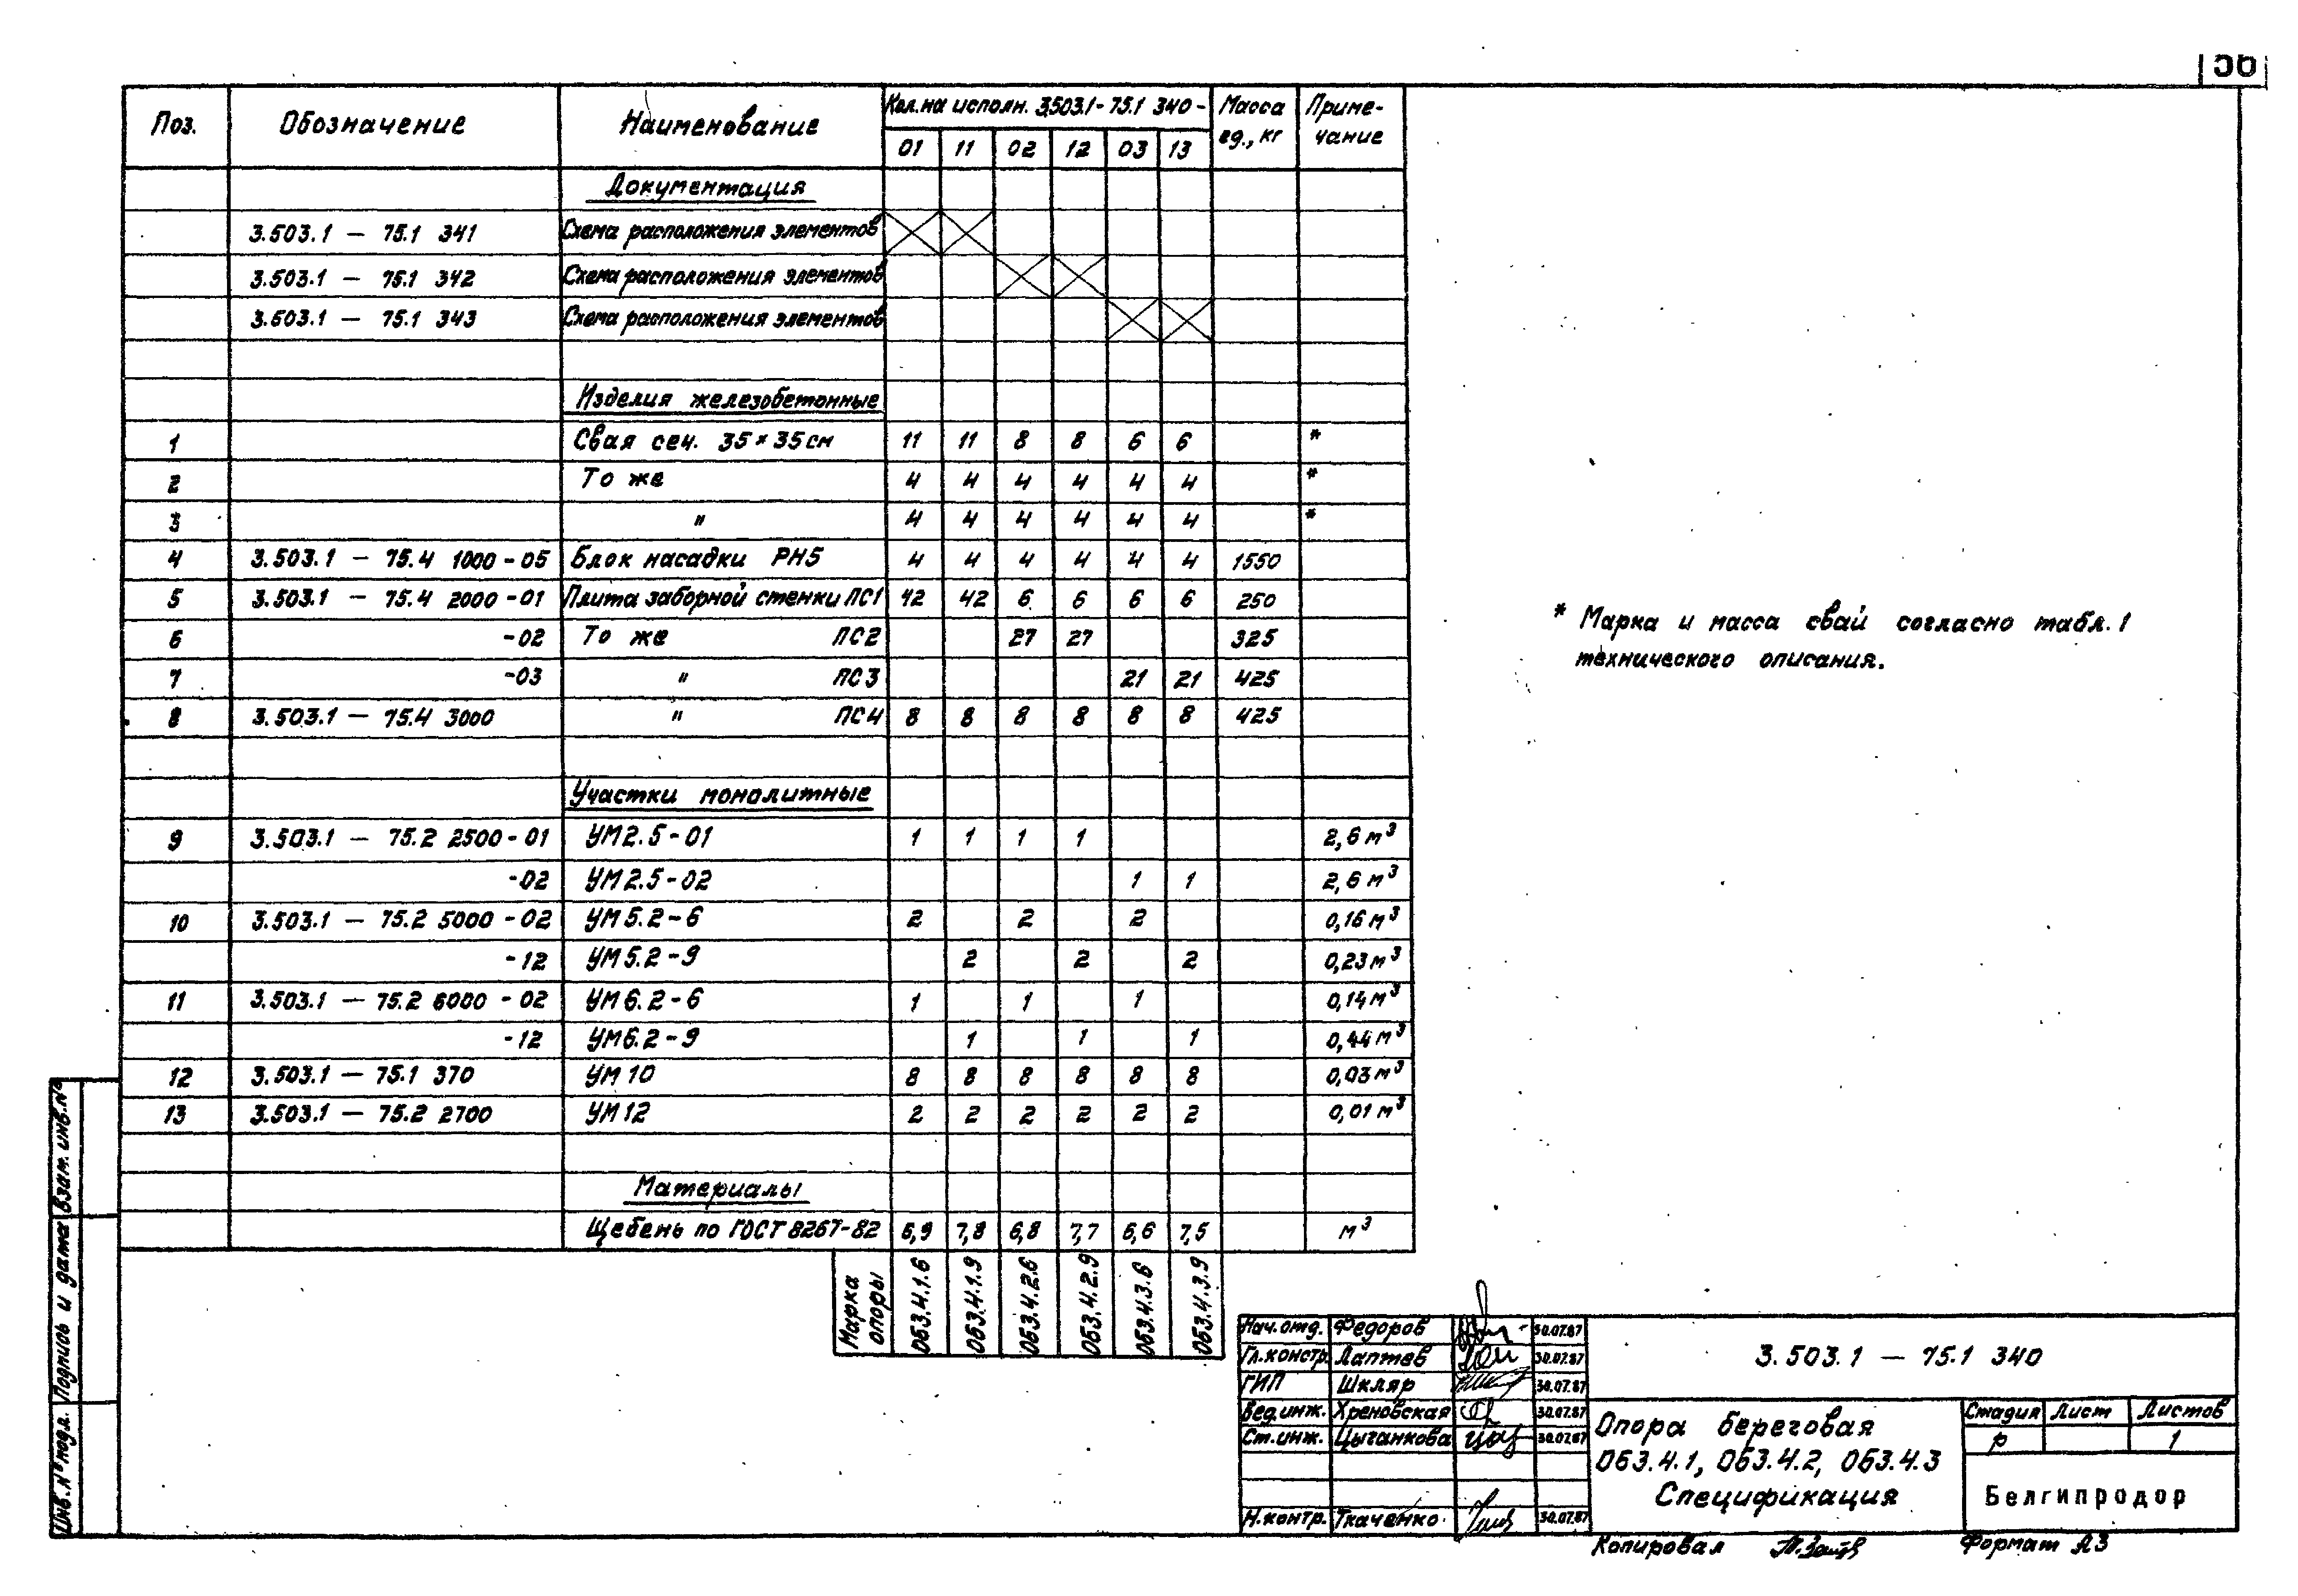 56
Поз. Обозначение Наименование Кол. на исполн. 3.503.1-75.1 340- Масса ед., кг Приме-чание
01 11 02 12 03 13
Документация
3.503.1 — 75.1 341 Схема расположения элементов
3.503.1 — 75.1 342 Схема расположения элементов
3.503.1 — 75.1 343 Схема расположения элементов
Изделия железобетонные
1 Свая сеч. 35×35 см 11 11 8 8 6 6 *
2 То же 4 4 4 4 4 4 *
3 " 4 4 4 4 4 4 *
4 3.503.1 — 75.4 1000-05 Блок насадки РН5 4 4 4 4 4 4 1550
5 3.503.1 — 75.4 2000-01 Плита заборной стенки ПС1 42 42 6 6 6 6 250
6 -02 То же ПС2 27 27 325
7 -03 " ПС3 21 21 425
8 3.503.1 — 75.4 3000 " ПС4 8 8 8 8 8 8 425
Участки монолитные
9 3.503.1 — 75.2 2500-01 УМ2.5-01 1 1 1 1 2,6 м³
-02 УМ2.5-02 1 1 2,6 м³
10 3.503.1 — 75.2 5000-02 УМ5.2-6 2 2 2 0,16 м³
-12 УМ5.2-9 2 2 2 0,23 м³
11 3.503.1 — 75.2 6000-02 УМ6.2-6 1 1 1 0,14 м³
-12 УМ6.2-9 1 1 1 0,44 м³
12 3.503.1 — 75.1 370 УМ10 8 8 8 8 8 8 0,03 м³
13 3.503.1 — 75.2 2700 УМ12 2 2 2 2 2 2 0,01 м³
Материалы
Щебень по ГОСТ 8267-82 6,9 7,8 6,8 7,7 6,6 7,5 м³
Марка опоры ОБ3.4.1.6 ОБ3.4.1.9 ОБ3.4.2.6 ОБ3.4.2.9 ОБ3.4.3.6 ОБ3.4.3.9
* Марка и масса свай согласно табл. 1
технического описания.
Инв. № подл. Подпись и дата Взам. инв. №
Нач. отд. Федоров 30.07.87
Гл. констр. Лаптев 30.07.87
ГИП Шкляр 30.07.87
Вед. инж. Хреновская 30.07.87
Ст. инж. Цыганкова 30.07.87
Н. контр. Ткаченко 30.07.87
3.503.1 — 75.1 340
Опора береговая
ОБ3.4.1, ОБ3.4.2, ОБ3.4.3
Спецификация
Стадия Лист Листов
Р 1
Белгипродор
Копировал
Формат А3